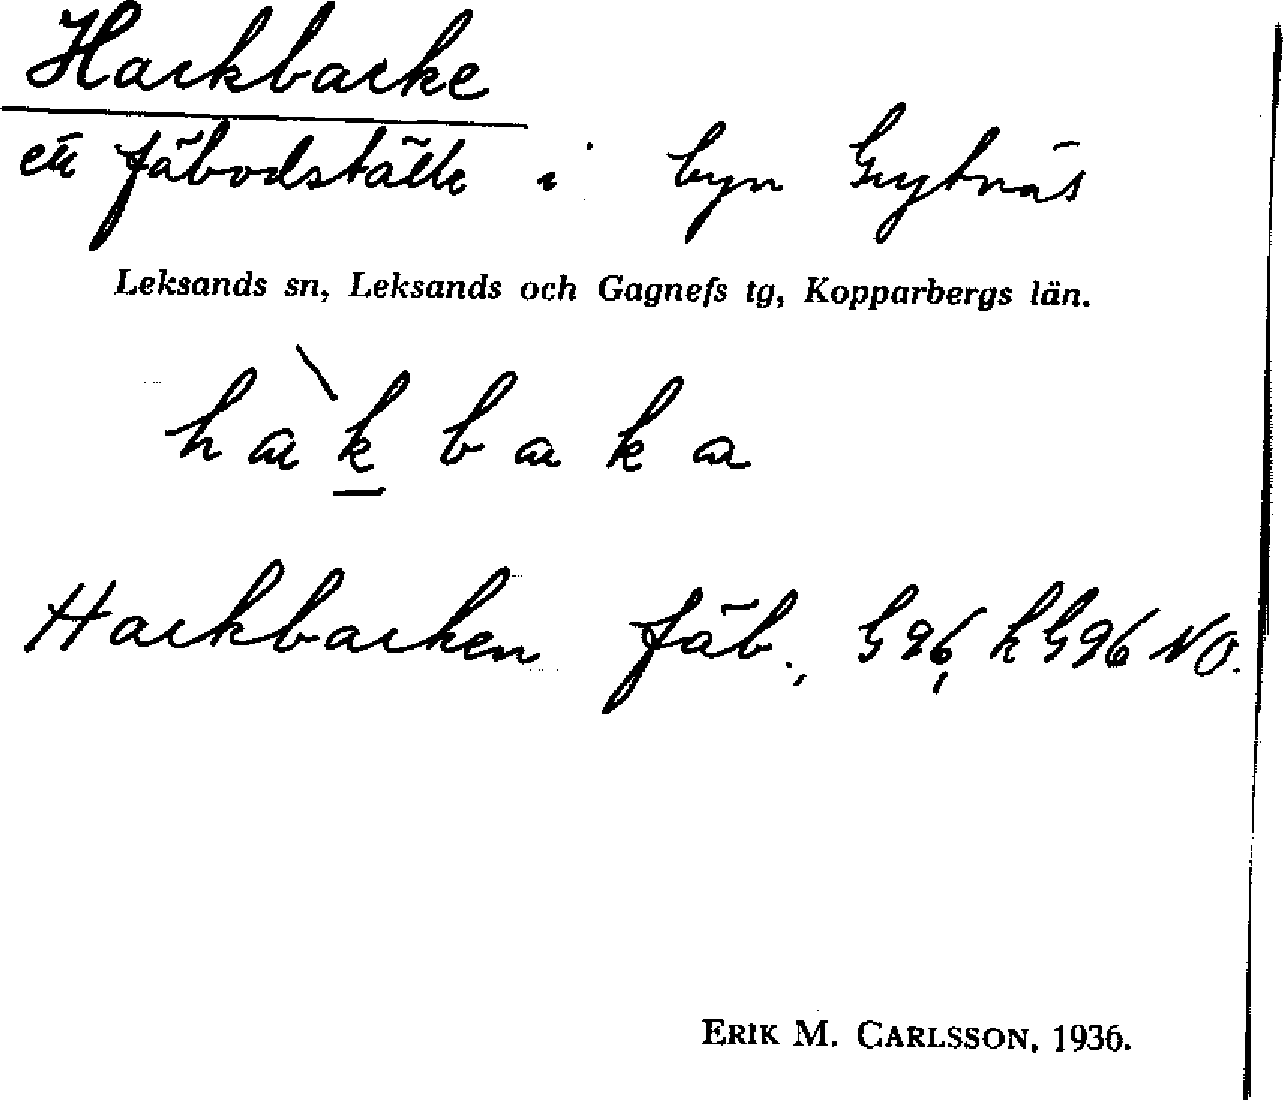 Hackbacke
ett fäbodställe i byn Grytnäs
Leksands sn, Leksands och Gagnefs tg, Kopparbergs län.
hàk̲baka
Hackbacken fäb., G 96, k G 96 NO.
ERIK M. CARLSSON, 1936.